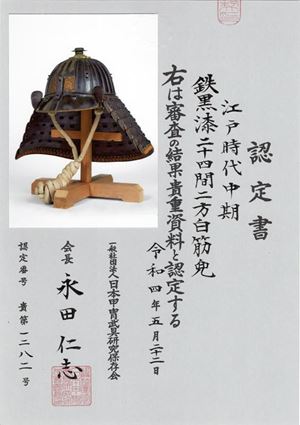 認定書
江戸時代中期
鉄黒漆二十四間二方白筋兜
右は審査の結果貴重資料と認定する
令和四年五月二十二日
一般社団法人日本甲冑武具研究保存会
会長 永田仁志
認定番号 貴第一二八二号